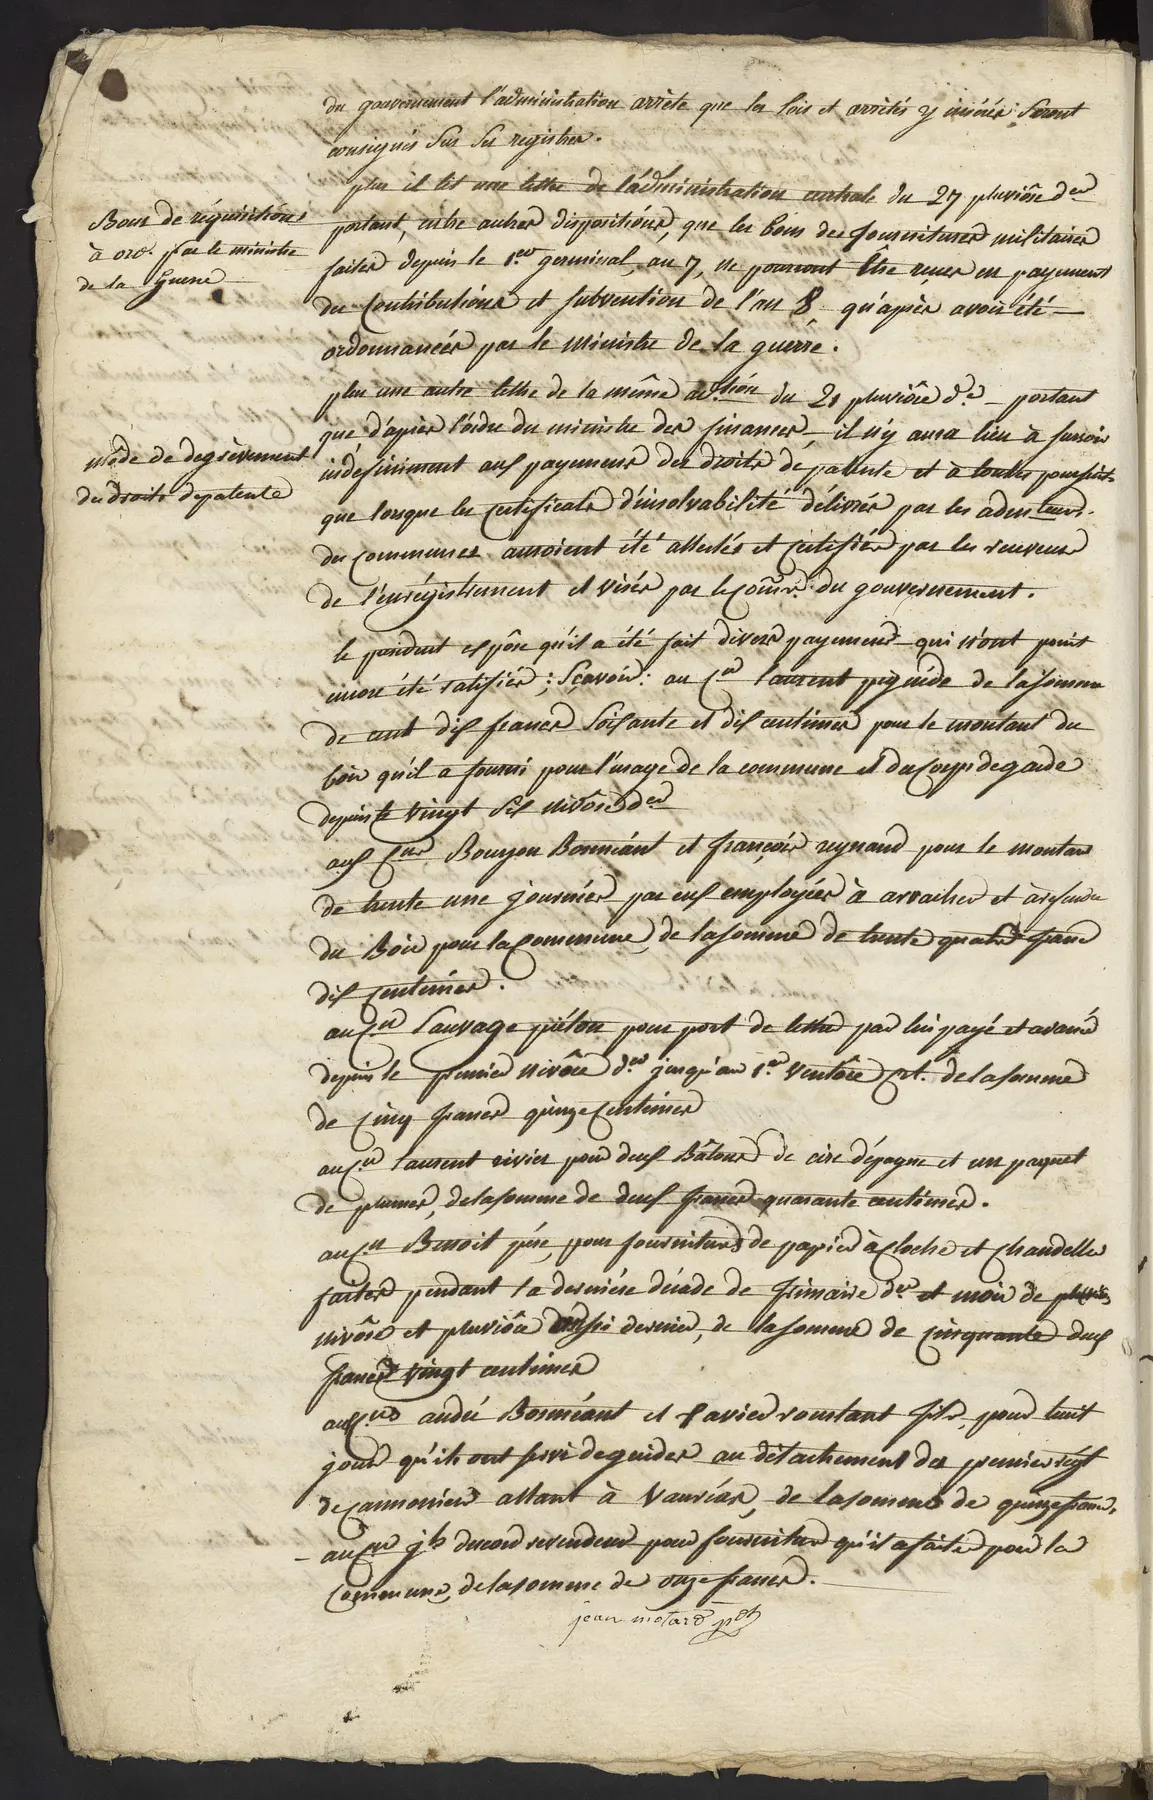 du gouvernement l'administration arrête que les lois et arrêtés y insérés seront
consignés sur ses registres.
plus il lit une lettre de l'administration centrale du 27 pluviôse der
Bons de réquisitions
à ord. par le ministre
de la Guerre
portant, entre autres dispositions, que les bons des fournitures militaires
faites depuis le 1.er germinal, an 7, ne pourront être reçus en payement
des Contributions et subvention de l'an 8, qu'après avoir été
ordonnancés par le Ministre de la guerre.
plus une autre lettre de la même ad.tion du 28 pluviôse d.er portant
mode de degrèvement
des droits de patente
que d'après l'ordre du ministre des finances, il n'y aura lieu à surseoir
indefiniment aux payemens des droits de patente et à toutes poursuites
que lorsque les certificats d'insolvabilité délivrés par les
des communes auroient été attestés et certifiés par les receveurs
de l'enrégistrement et visés par le Comm.re du gouvernement.
le president expôse qu'il a été fait divers payemens qui n'ont point
encore été ratifiés; Sçavoir: au C.en laurent piguide de la somme
de cent dix francs Soixante et dix centimes pour le montant du
bois qu'il a fourni pour l'usage de la commune et du Corps de garde
depuis le vingt six nivôse der
aux C.ens Bouyon Bonnéant et françois reynaud pour le montant
de trente une journées par eux employées à arracher et à refendre
du Bois pour la Commune, de la somme de trente quatre francs
dix Centimes.
au C.en Sauvage piéton pour port de lettres par lui payé et avancé
depuis le premier nivôse d.er jusqu'au 1.er Ventôse C.t. de la somme
de Cinq francs quinze Centimes
au C.en laurent rivier pour deux Bâtons de cire d'épagne et un paquet
de plumes, de la somme de deux francs quarante centimes.
au C.en Benoit père, pour fournitures de papier à Cloche et Chandelles
faites pendant la dernière décade de frimaire d.er et mois de
nivôse et pluviôse aussi dernier, de la somme de cinquante deux
francs vingt centimes
aux C.ens andré Bonnéant et Xavier roustant fils, pour huit
jours qu'ils ont servi de guides au détachement des premier régt
de Cannoniers allant à Vauréas, de la somme de quinze francs.
au C.en jh ducour revendeur pour fournitures qu'il a faites pour la
Commune, de la somme de onze francs.
jean motard pdt